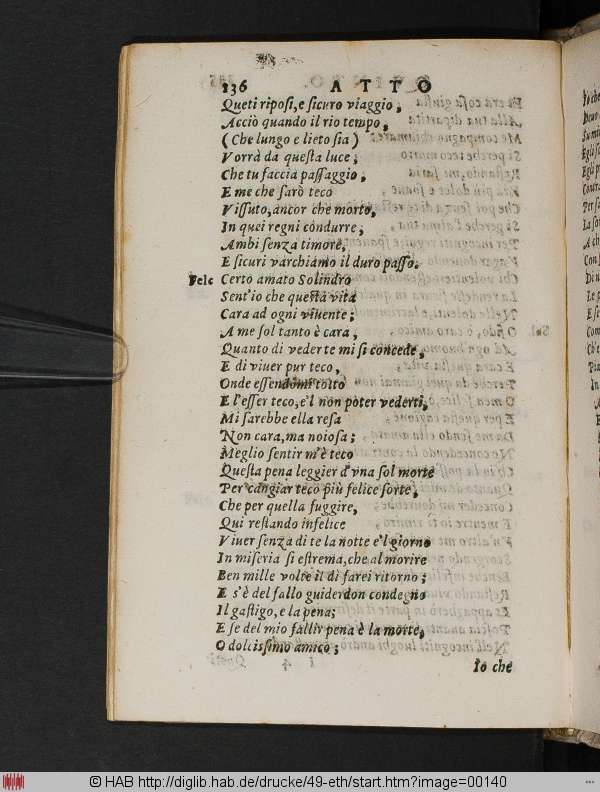 136 ATTO
Queti riposi, e sicuro viaggio,
Acciò quando il rio tempo,
(Che lungo e lieto sia)
Vorrà da questa luce;
Che tu faccia passaggio,
E me che sarò teco
Vissuto, ancor che morto,
In quei regni condurre,
Ambi senza timore,
E sicuri varchiamo il duro passo.
Felc Certo amato Solindro
Sent'io che questa vita
Cara ad ogni vivente;
A me sol tanto è cara,
Quanto di veder te mi si concede,
E di viuer pur teco,
Onde essendomi tolto
E l'esser teco, e'l non poter vederti,
Mi sarebbe ella resa
Non cara, ma noiosa;
Meglio sentir m'è teco
Questa pena leggier d'vna sol morte
Per cangiar teco più felice sorte,
Che per quella fuggire,
Qui restando infelice
Viuer senza di te la notte e'l giorno
In miseria si estrema, che al morire
Ben mille volte il dì farei ritorno;
E s'è del fallo guiderdon condegno
Il gastigo, e la pena;
E se del mio fallir pena è la morte,
O dolcissimo amico;
Io che
© HAB http://diglib.hab.de/drucke/49-eth/start.htm?image=00140